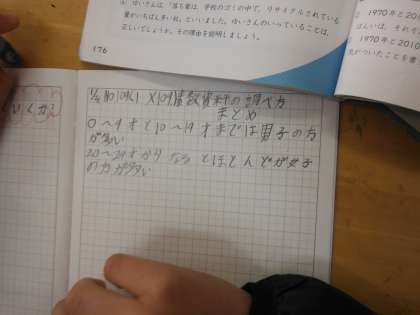 ④ ゆいさんは、「落ち葉は、学校のゴミの中で、リサイクルされている
量がいちばん多いね。」といいました。ゆいさんのいっていることは、
正しいでしょうか。その理由を説明しましょう。
176
1970年と20
ばんは、それぞ
1970年と2010
たがついたことを書
資料の調べ方
まとめ
0～9才と10～19才までは男子の方
が多い
20～29才から
ほとんどが女子
の方が多い